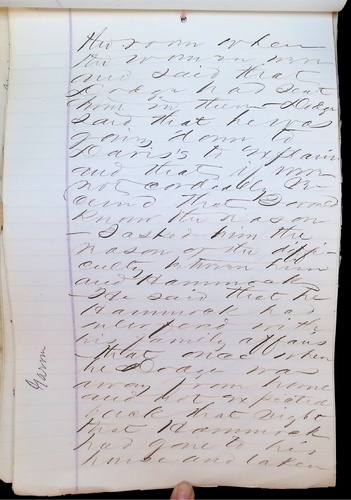 the room when
the woman
and said that
Dodge had sent
him in there - Dodge
said that he was
going down to
Davis's to explain
and that if
not cordially re
ceived that I would
know the reason
- I asked him the
reason of the diffi
culty between him
and Hammock
- He said that he
Hammock had
interfered with
his family affairs
- that once when
he Dodge was
away from home
and not expected
back that night
that Hammock
had gone to his
house and taken
Garon